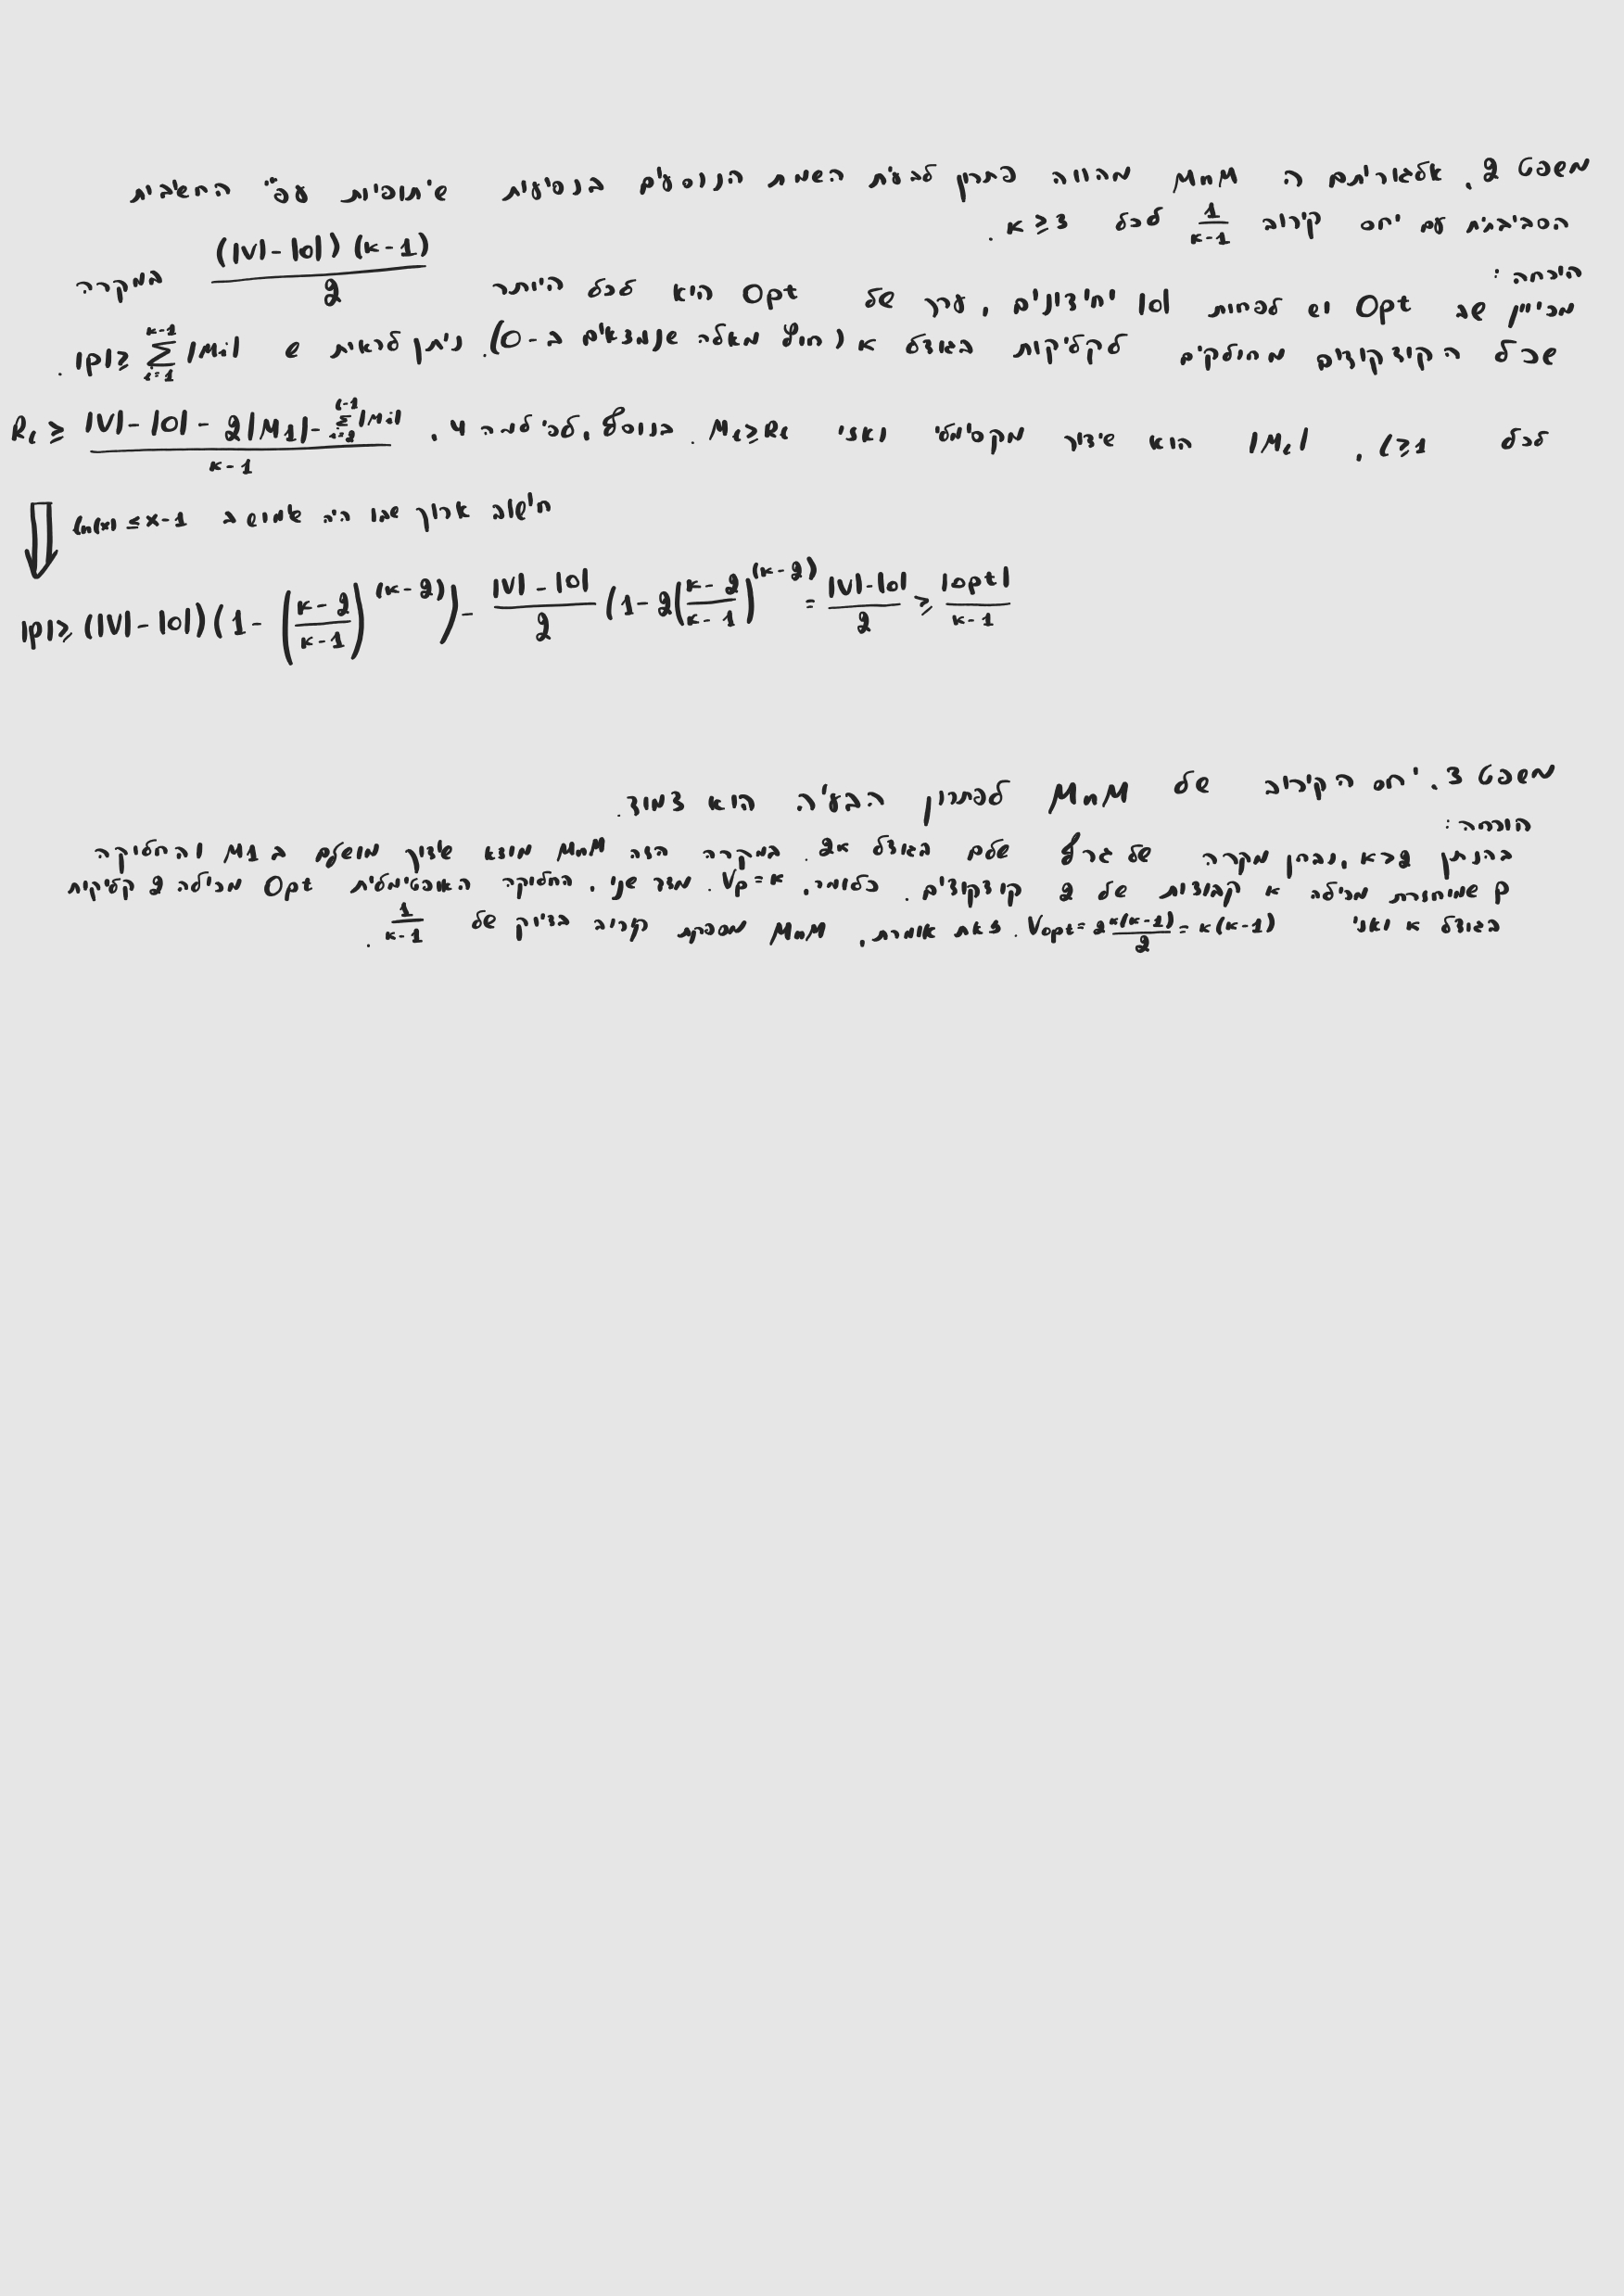 משפט 2. אלגוריתם ה MnM מהווה פתרון לבעית השמת הנוסעים בנסיעות שיתופיות עפ"י החשיבות
הסביבתית עם יחס קירוב 1/(k-1) לכל k ≥ 3.
הוכחה:
מכיוון שב Opt יש לפחות |O| יחידונים, ערך של Opt היא לכל היותר (|V|-|O|)(k-1)/2 במקרה
שכל הקודקודים מחולקים לקליקות בגודל k (חוץ מאלה שנמצאים ב-O). ניתן לראות ש |P| ≥ ∑_{i=1}^{k-1} |Mi|.
לכל l ≥ 1, |Ml| הוא שידוך מקסימלי ואזי Ml ≥ Rl. בנוסף, לפי למה 4, Rl ≥ (|V|-|O|-2|M1|-∑_{i=2}^{l-1}|Mi|)/(k-1)
חישוב ארוך שבו היה שימוש ב ln(x) ≤ x-1 ⇓
|P| ≥ (|V|-|O|)(1-((k-2)/(k-1))^(k-2)) - (|V|-|O|)/2 (1-2((k-2)/(k-1))^(k-2) = (|V|-|O|)/2 ≥ |opt|/(k-1)
משפט 3. יחס הקירוב של MnM לפתרון הבעיה הוא צמוד.
הוכחה:
בהנתן k>2, נבחן מקרה של גרף שלם בגודל 2k. במקרה הזה MnM מוצא שידוך מושלם ב M1 והחלוקה
P שמוחזרת מכילה k קבוצות של 2 קודקודים. כלומר, Vp=k. מצד שני, החלוקה האופטימלית Opt מכילה 2 קליקות
בגודל k ואזי Vopt = 2 k(k-1)/2 = k(k-1). זאת אומרת, MnM מספקת קירוב בדיוק של 1/(k-1).